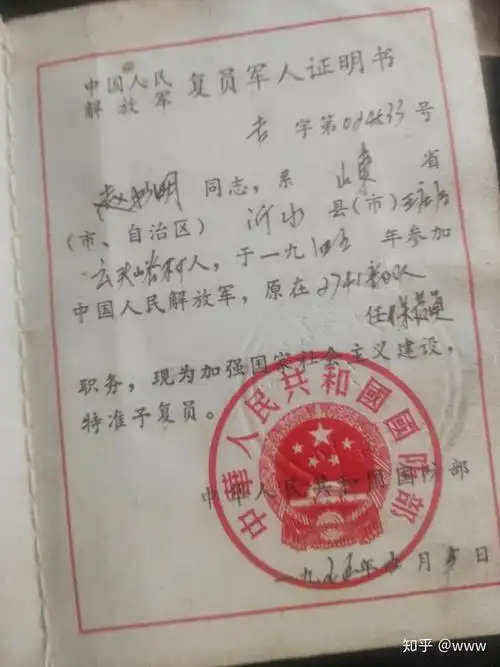 中国人民
解放军 复员军人证明书
吉 字第 号
赵 明 同志，系 山东 省
（市、自治区） 沂水 县（市）
村人，于一九四五 年参加
中国人民解放军，原在2741 部队
任保管员
职务，现为加强国家社会主义建设，
特准予复员。
中华人民共和国国防部
中華人民共和國國防部
一九五五年 月 日
知乎 @www